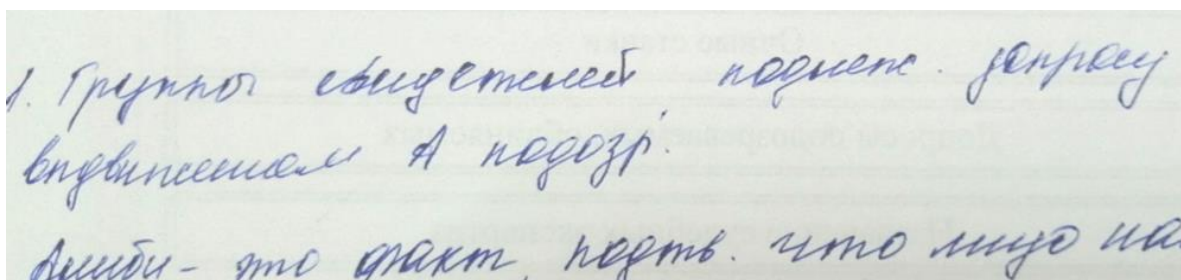 1. Группы свидетелей подлеж. допросу
выдвижением А подозр.
Алиби - это факт, подтв. что лицо на